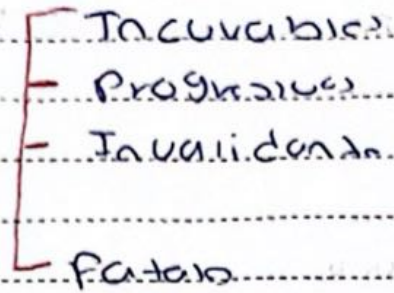 Incurables
Progresivas
Invalidantes
Fatales